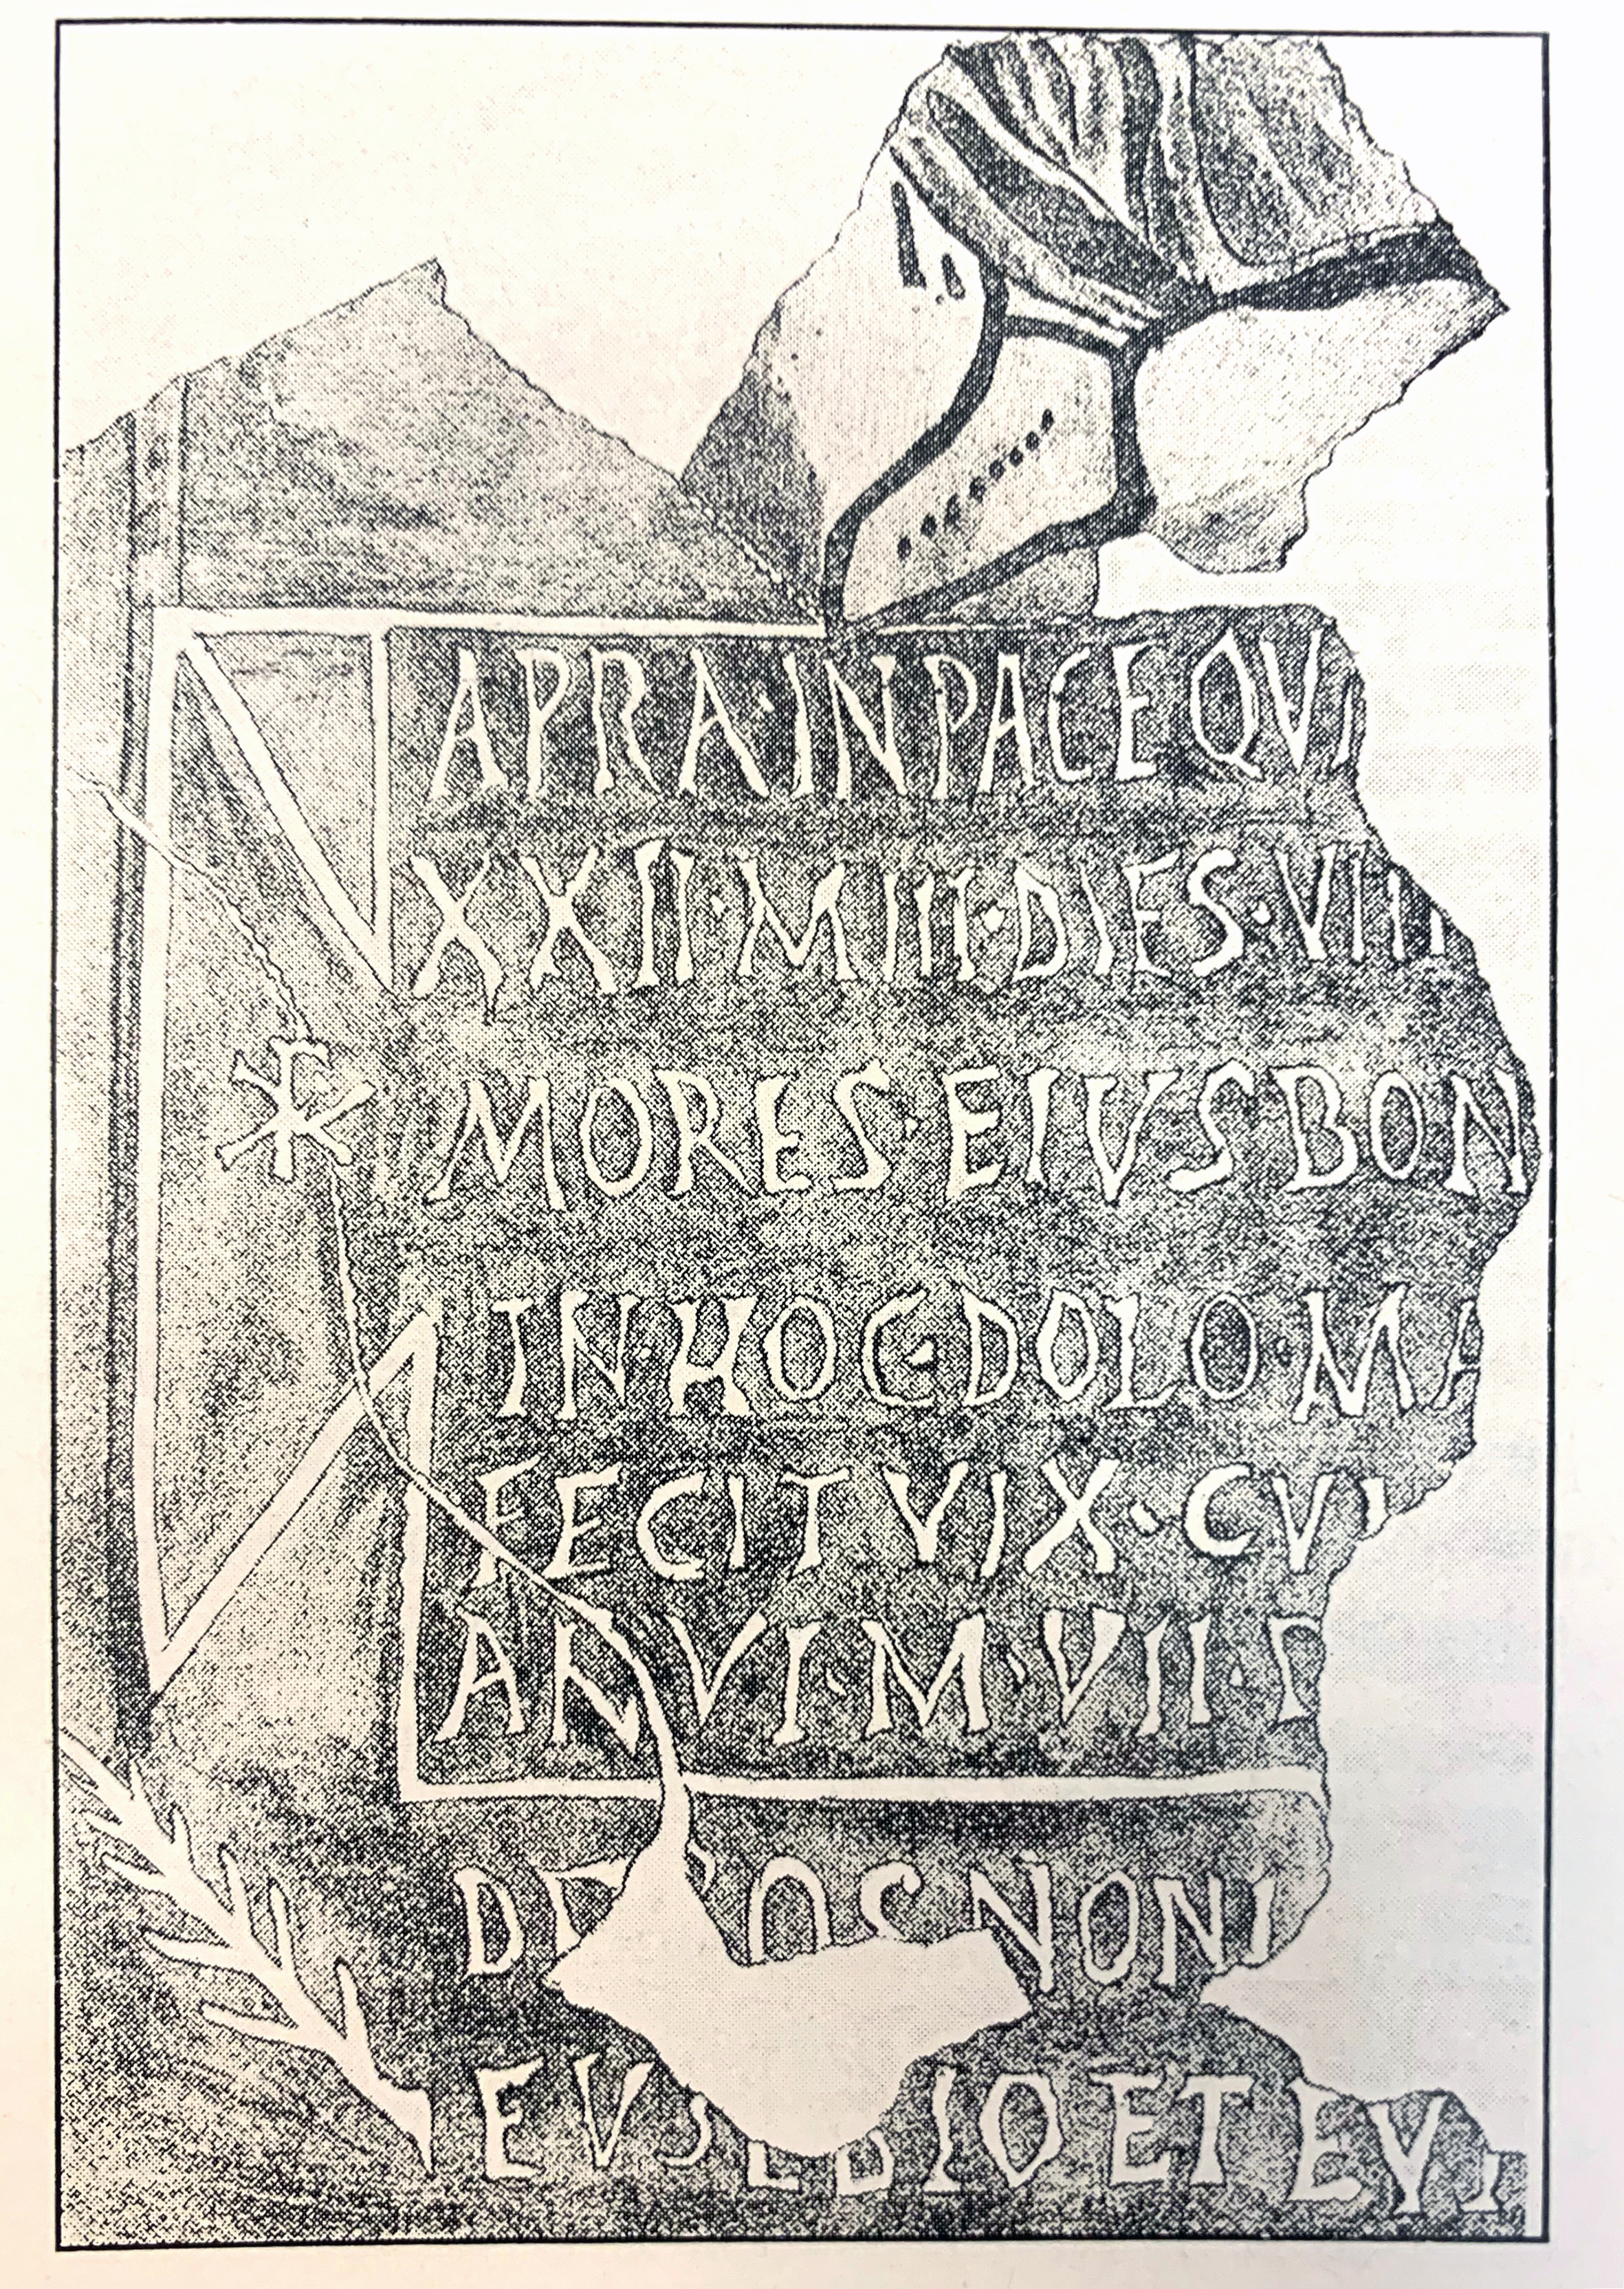 APRA·IN PACE QVI
XXII·M III·DIES·VIII
MORES·EIVS BON
IN·HOC·DOLO·MA
FECIT VIX·CVI
AN VI·M·VII·D
NONI
ET